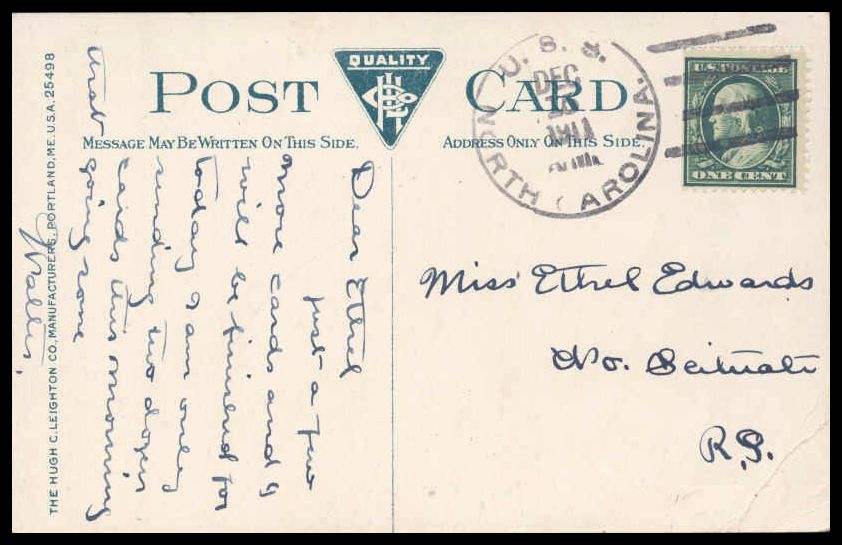 POST CARD
QUALITY
MESSAGE MAY BE WRITTEN ON THIS SIDE.
ADDRESS ONLY ON THIS SIDE.
THE HUGH C. LEIGHTON CO., MANUFACTURERS, PORTLAND, ME. U.S.A. 25498
U. S. S.
NORTH CAROLINA.
DEC
1911
U.S. POSTAGE
ONE CENT
Dear Ethel
just a few
more cards and I
will be finished for
today I am only
sending two dozen
cards this morning
going some
that
Miss Ethel Edwards
No. Scituate
R.I.